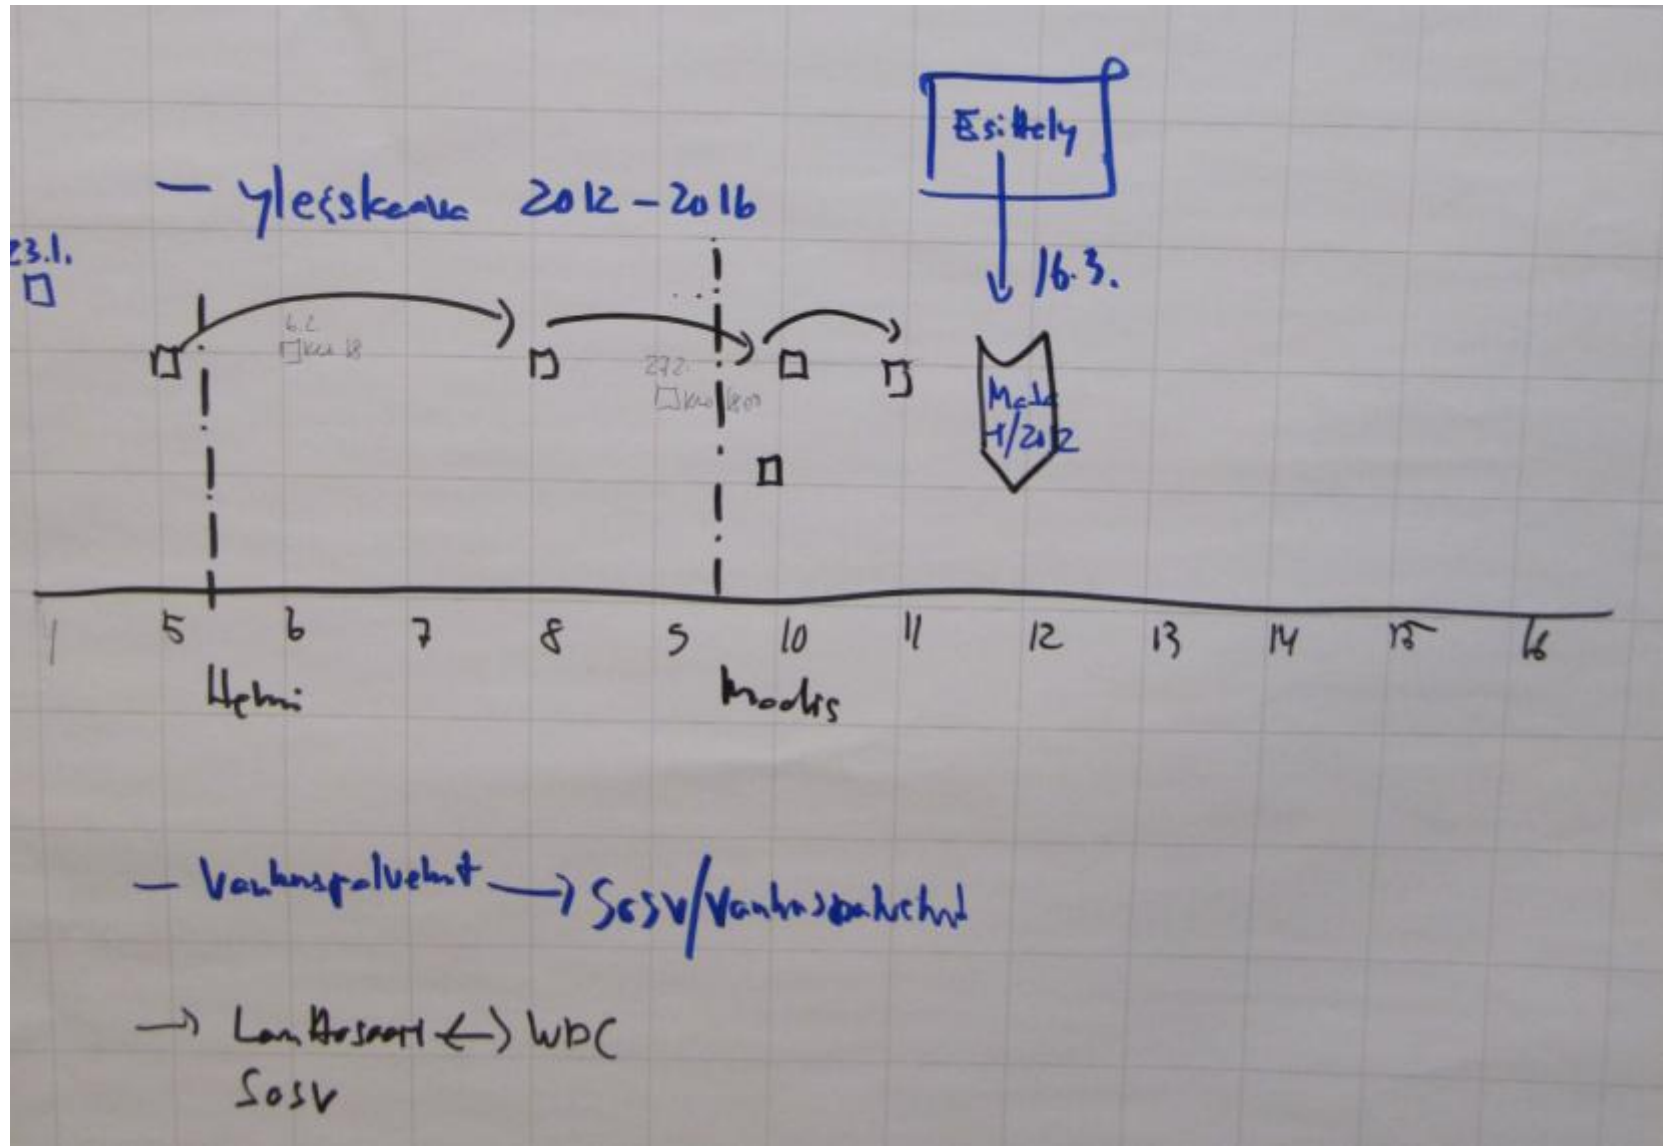 Esittely
– yleiskaava 2012–2016
23.1.
16.3.
6.2.
klo 18
27.2.
klo 1800
/2012
5 6 7 8 9 10 11 12 13 14 15 16
Helmi Maalis
– Vanhuspalvelut → Sosv/Vanhuspalvelut
→ Lauttasaari ↔ WDC
Sosv